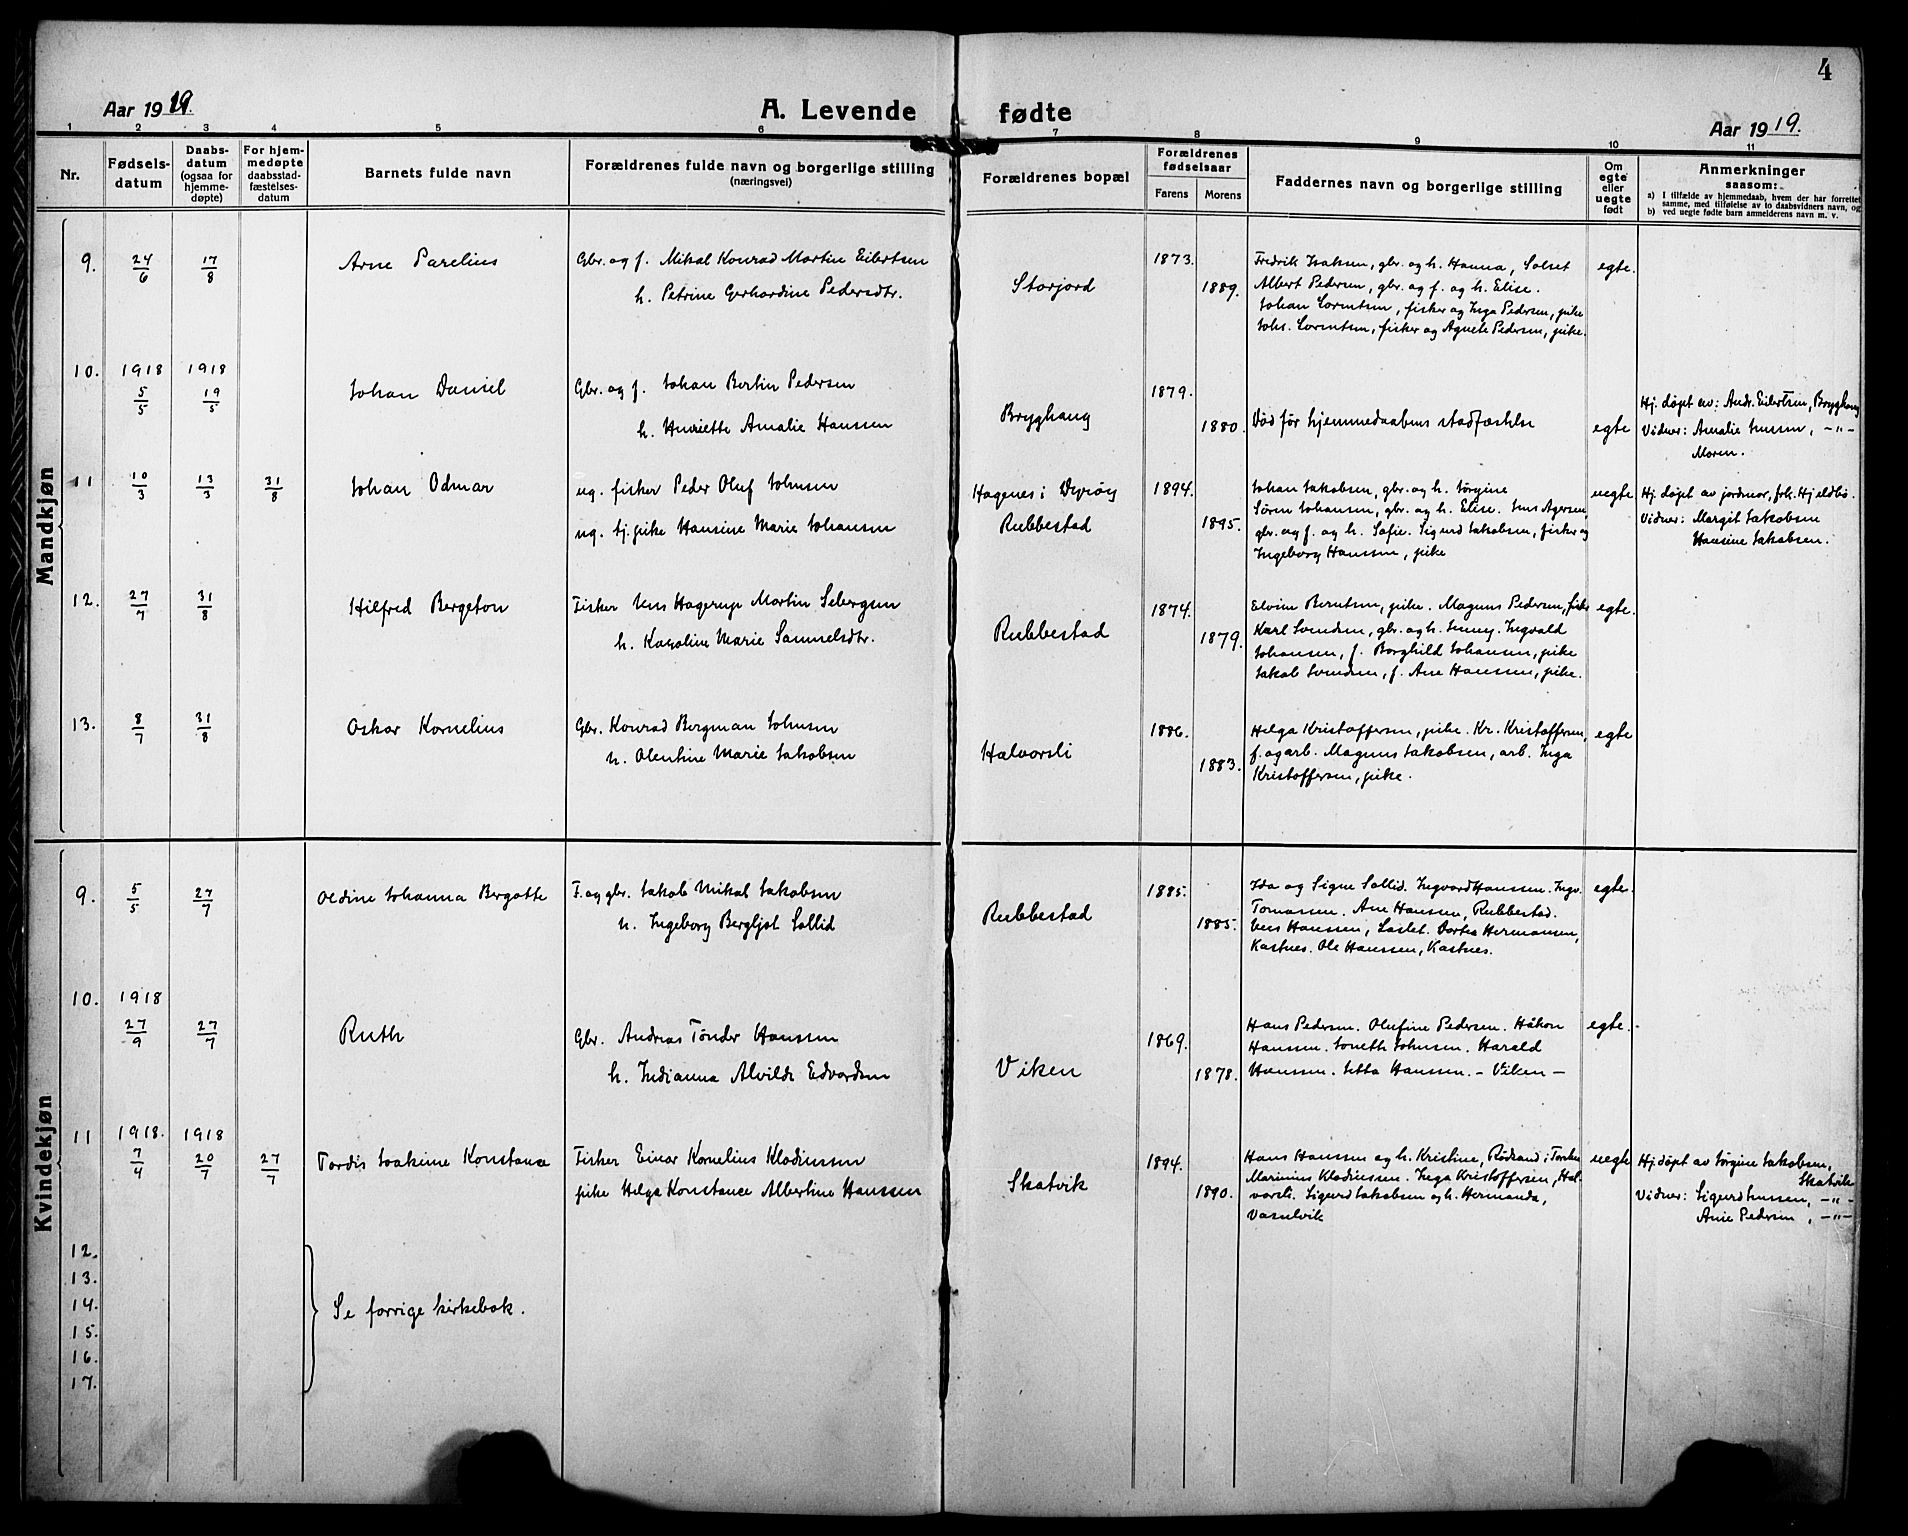 4
Aar 1919.
A. Levende fødte
Aar 1919.
1 2 3 4 5 6 7 8 9 10 11
Nr.
Fødsels-
datum
Daabs-
datum
(ogsaa for
hjemme-
døpte)
For hjem-
medøpte
daabsstad-
fæstelses-
datum
Barnets fulde navn
Forældrenes fulde navn og borgerlige stilling
(næringsvei)
Forældrenes bopæl
Forældrenes
fødselsaar
Farens Morens
Faddernes navn og borgerlige stilling
Om
egte
eller
uegte
født
Anmerkninger
saasom:
a) I tilfælde av hjemmedaab, hvem der har forrettet
samme, med tilføielse av to daabsvidners navn, og
b) ved uegte fødte barn anmelderens navn m. v.
Mandkjøn
9. 24/6 17/8 Arne Parelius
Gbr. og f. Mikal Konrad Martin Eilertsen
h. Petrine Gerhardine Pedersdtr.
Storjord
1873.
1889.
Fredrik Isaksen, gbr. og h. Hanna, Solset
Albert Pedersen, gbr. og f. og h. Elise.
Johan Lorentsen, fisker og Inga Pedersen, pike
Johs. Lorentsen, fisker og Agnete Pedersen, pike.
egte.
10. 1918 1918
5/5 19/5 Johan Daniel
Gbr. og f. Johan Bertin Pedersen
h. Henriette Amalie Hansen
Bryghaug
1879.
1880.
Død før hjemmedaabens stadfæstelse
egte
Hj. døpt av: Andr. Eilertsen, Bryghaug
Vidner: Amalie Jensen, -"-
Moren.
11 10/3 13/3 31/8 Johan Odmar
ug. fisker Peder Oluf Johnsen
ug. tj. pike Hansine Marie Johansen
Hagenes i Dyrøy
Rubbestad
1894.
1895.
Johan Jakobsen, gbr. og h. Jørgine
Søren Johansen, gbr. og h. Elise. Jens Agersen,
gbr. og f. og h. Sofie. Sigurd Jakobsen, fisker og
Ingeborg Hanssen, pike
uegte
Hj. døpt av jordmor, frk. Hjeldbo.
Vidner: Margit Jakobsen
Hansine Jakobsen.
12. 27/7 31/8 Hilfred Bergeton
Fisker Jens Hagerup Martin Sebergsen
h. Karoline Marie Samuelsdtr.
Rubbestad
1874.
1879.
Elvine Berntsen, pike. Magnus Pedersen, fisk.
Karl Svendsen, gbr. og h. Jenny. Ingvald
Johansen, f. Borghild Johansen, pike
Jakob Svendsen, f. Ane Hanssen, pike.
egte.
13. 8/7 31/8 Oskar Kornelius
Gbr. Konrad Bergman Johnsen
h. Olentine Marie Jakobsen
Halvorsli
1886.
1883.
Helga Kristoffersen, pike. Kr. Kristoffersen,
f. og arb. Magnus Jakobsen, arb. Inga
Kristoffersen, pike.
egte
Kvindekjøn
9. 5/5 27/7 Oldine Johanna Bergotte
F. og gbr. Jakob Mikal Jakobsen
h. Ingeborg Bergljot Sollid
Rubbestad
1885.
1885.
Ida og Signe Sollid. Ingvard Hanssen. Ingv.
Tomassen. Ane Hanssen, Rubbestad.
Jens Hanssen, Laslet. Dortea Hermansen,
Kastnes. Ole Hanssen, Kastnes.
egte.
10. 1918
27/9 27/7 Ruth
Gbr. Andreas Tønder Hanssen
h. Indianna Alvilde Edvardsen
Viken
1869.
1878.
Hans Pedersen. Olufine Pedersen. Håkon
Hanssen. Joneth Johnsen. Harald
Hanssen. Jetta Hanssen. - Viken -
egte.
11 1918. 1918
7/4 20/7 27/7 Tordis Joakime Konstance
Fisker Einar Kornelius Kladiussen
pike Helga Konstance Albertine Hanssen
Skatvik
1894.
1890.
Hans Hanssen og h. Kristine, Rødsand i Torsken
Marinius Kladiussen. Inga Kristoffersen, Hal-
vorsli. Sigurd Jakobsen og h. Hermanda,
Vasselvik
uegte
Hj. døpt av Jørgine Jakobsen,
Skatvik
Vidner: Sigurd Jensen, -"-
Anne Pedersen, -"-
12.
13.
14. Se forrige kirkebok.
15.
16.
17.